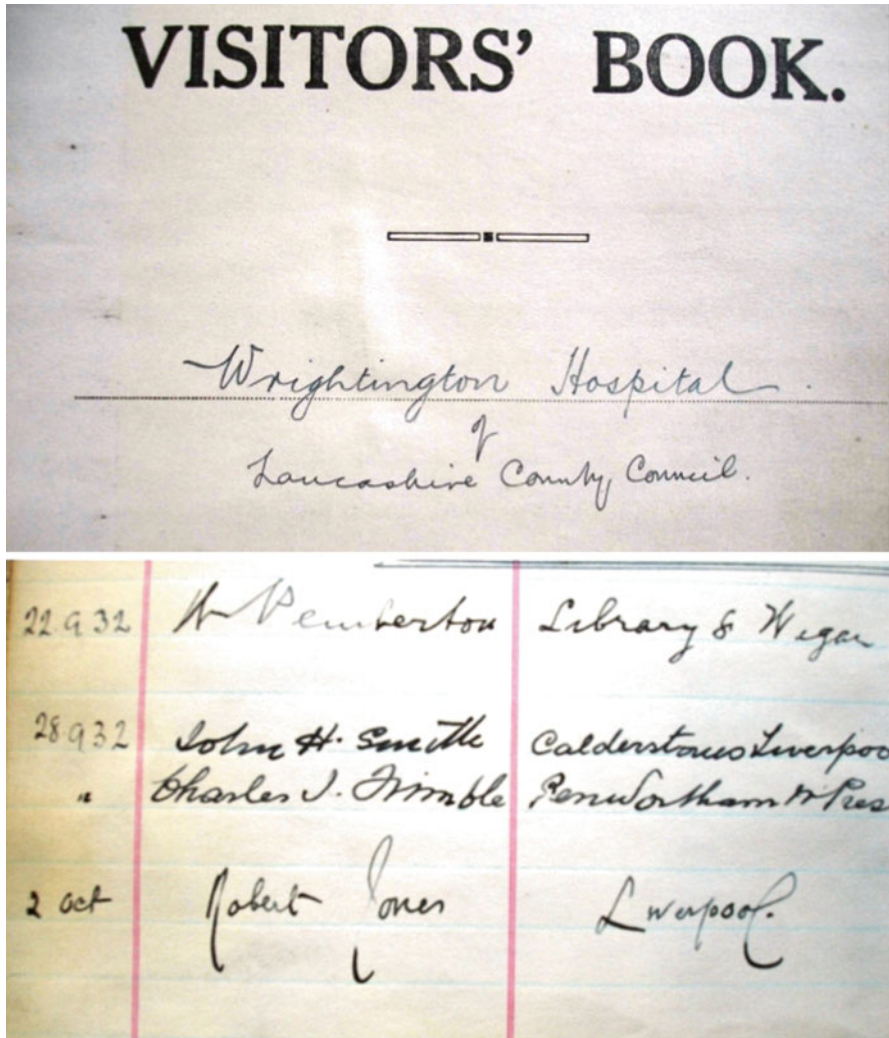 VISITORS' BOOK.
Wrightington Hospital.
of
Lancashire County Council.
22.9 32 Pemberton Library & Wigan
28.9 32 John H. Smith Calderstones Liverpoo
" Charles J. Trimble Penwortham Nr Pres
2 Oct Robert Jones Liverpool.